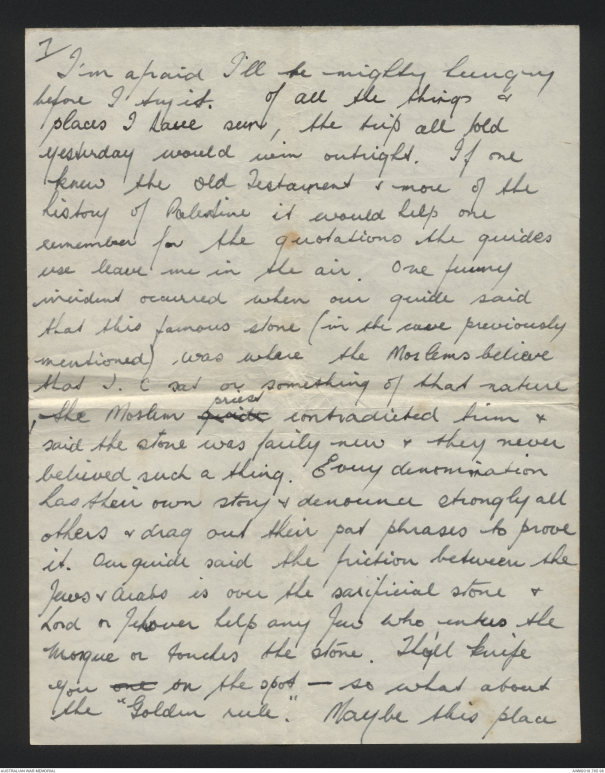 7/
I'm afraid I'll be mighty hungry
before I try it. Of all the things &
places I have seen, the trip all told
yesterday would win outright. If one
knew the Old Testament & more of the
history of Palestine it would help one
remember for the quotations the guides
use leave me in the air. One funny
incident occurred when our guide said
that this famous stone (in the cave previously
mentioned) was where the Moslems believe
that J. C sat or something of that nature
, the Moslem guide priest contradicted him &
said the stone was fairly new & they never
believed such a thing. Every denomination
has their own story & denounce strongly all
others & drag out their pat phrases to prove
it. Our guide said the friction between the
Jews & Arabs is over the sacrificial stone &
Lord or Jehover help any Jew who enters the
Mosque or touches the stone. They'll knife
you one on the spot — so what about
the "Golden rule." Maybe this place
AUSTRALIAN WAR MEMORIAL